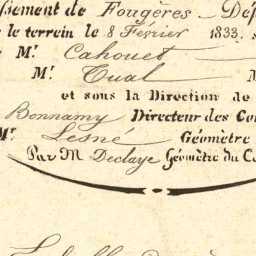 ssement de Fougères Dép
le terrein le 8 Février 1833. s
Mr. Cahouet
Mr. Tual
et sous la Direction de
Bonnamy Directeur des Con
Mr. Lesné Géomètre
Par M Declaye Géomètre du Ca